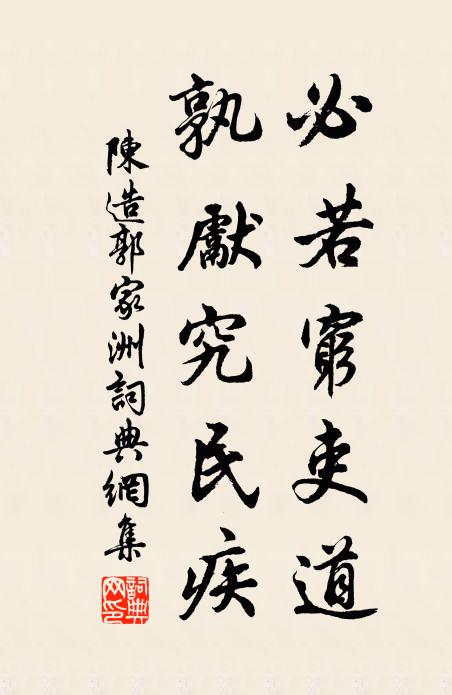 必若窮吏道
孰獻究民疾
陳造郭家洲詞典網集
詞典網印